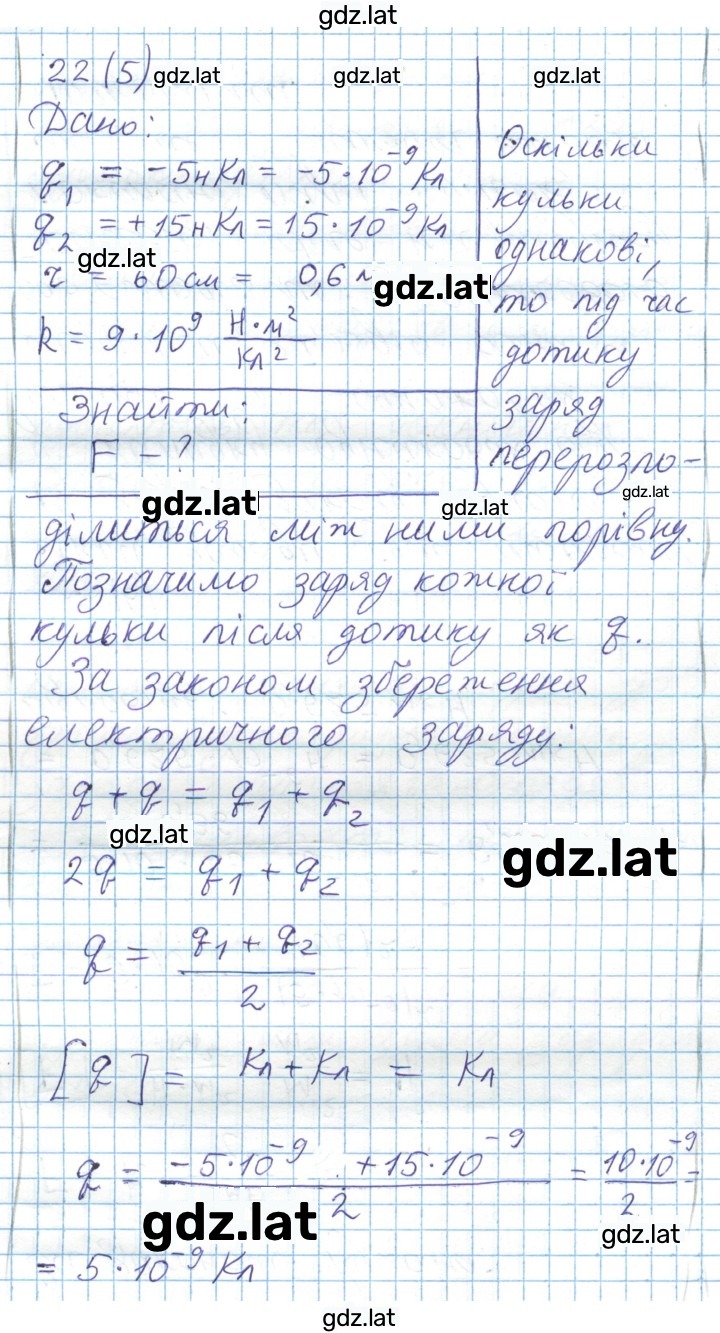 gdz.lat
22 (5) gdz.lat gdz.lat gdz.lat
Дано:
q₁ = -5нКл = -5·10⁻⁹ Кл
q₂ = +15нКл = 15·10⁻⁹ Кл
gdz.lat
r = 60 см = 0,6 м
gdz.lat
k = 9·10⁹ Н·м²/Кл²
Знайти:
F - ?
Оскільки
кульки
однакові,
то під час
дотику
заряд
перерозпо-
gdz.lat gdz.lat gdz.lat
ділиться між ними порівну.
Позначимо заряд кожної
кульки після дотику як q.
За законом збереження
електричного заряду:
q + q = q₁ + q₂
gdz.lat gdz.lat
2q = q₁ + q₂
q = (q₁ + q₂)/2
[q] = Кл + Кл = Кл
q = (-5·10⁻⁹ + 15·10⁻⁹)/2 = 10·10⁻⁹/2 =
gdz.lat gdz.lat
= 5·10⁻⁹ Кл
gdz.lat